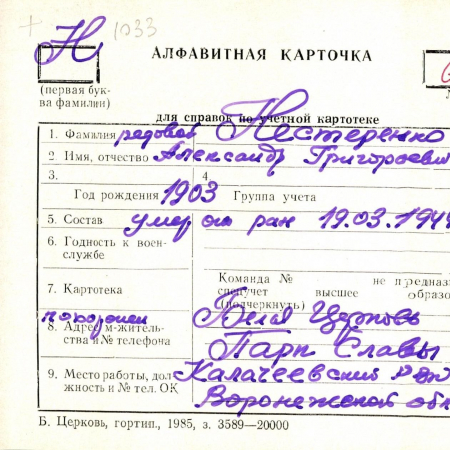 Н 1033
АЛФАВИТНАЯ КАРТОЧКА
(первая бук-
ва фамилии)
для справок по учетной картотеке
1. Фамилия рядовой Нестеренко
2. Имя, отчество Александр Григорьеви
3. 4.
Год рождения 1903 Группа учета
5. Состав умер от ран 19.03.194
6. Годность к воен-
службе
Команда № не предназ
7. Картотека спецучет высшее образо
(подчеркнуть)
похоронен Белая Церковь
8. Адрес м-житель-
ства и № телефона Парк Славы
9. Место работы, дол Калачеевский
жность и № тел. ОК Воронежской обл
Б. Церковь, гортип., 1985, з. 3589—20000